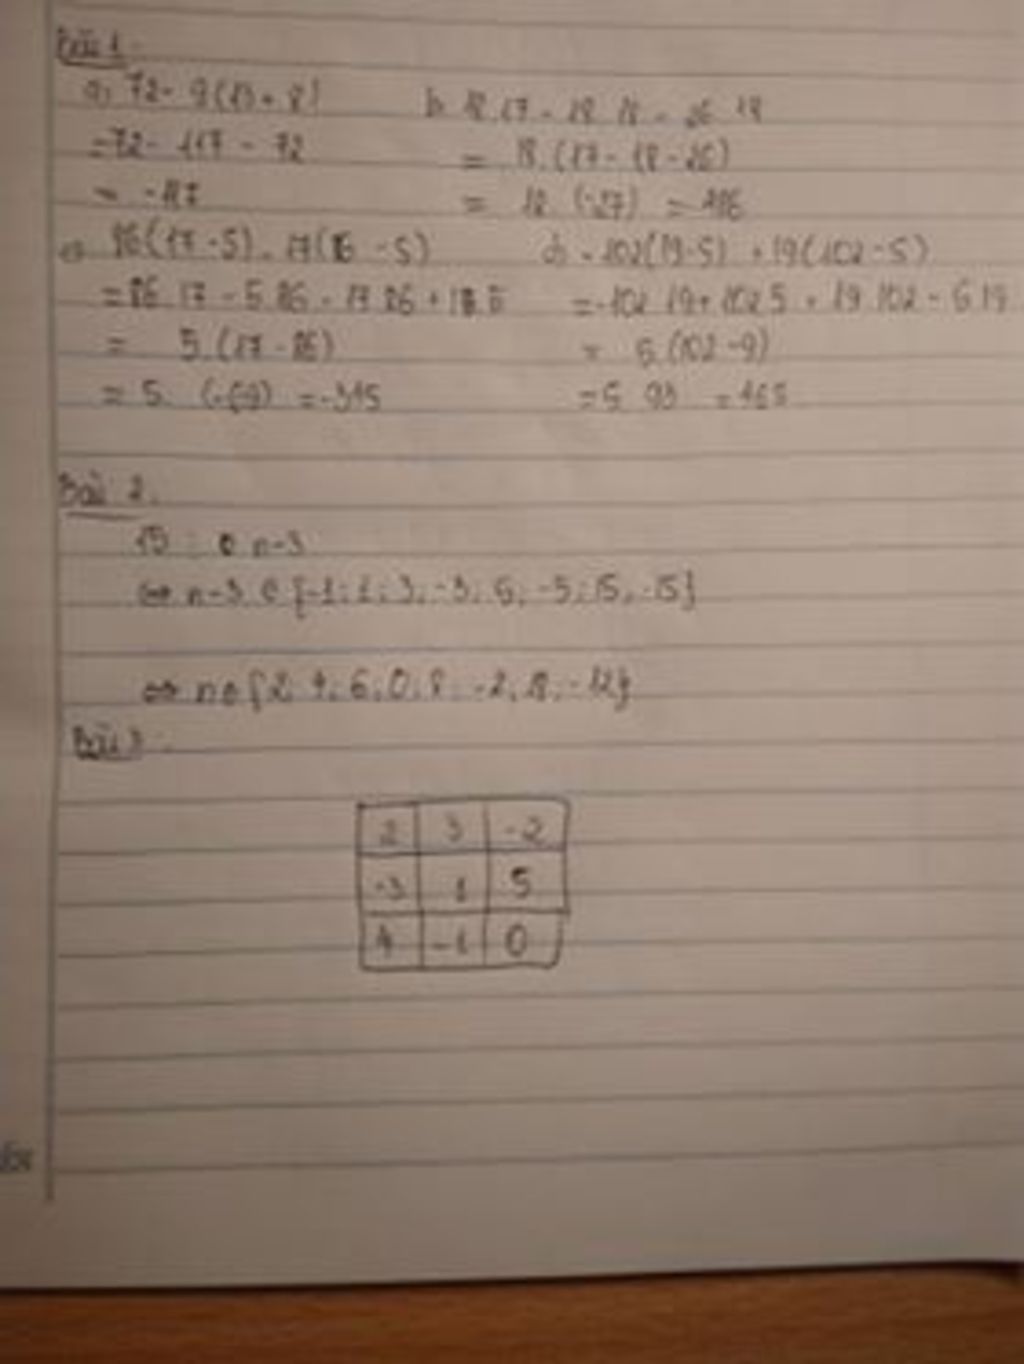 Bài 1.
a, 72 - 9(13 + 8)
= 72 - 117 - 72
= - 117
= 18.(17 - 18 - 26)
= 18 (-27) =
86(17 - 5) - 17(86 - 5)
d, - 102(19-5) + 19(102 - 5)
= 86 17 - 5.86 - 17 86 + 17.5
= -102 19 + 102 5 + 19 102 - 5 19
= 5.(17 - 86)
= 5.(102 - 9)
= 5. (-69) = -345
= 5 93 = 465
Bài 2.
15 ⋮ n-3
⇔ n-3 ∈ {-1; 1; 3; -3; 5; -5; 15; -15}
⇔ n ∈ {2; 4; 6; 0; 8; -2; 18; -12}
Bài 3.
2 3 -2
-3 1 5
4 -1 0